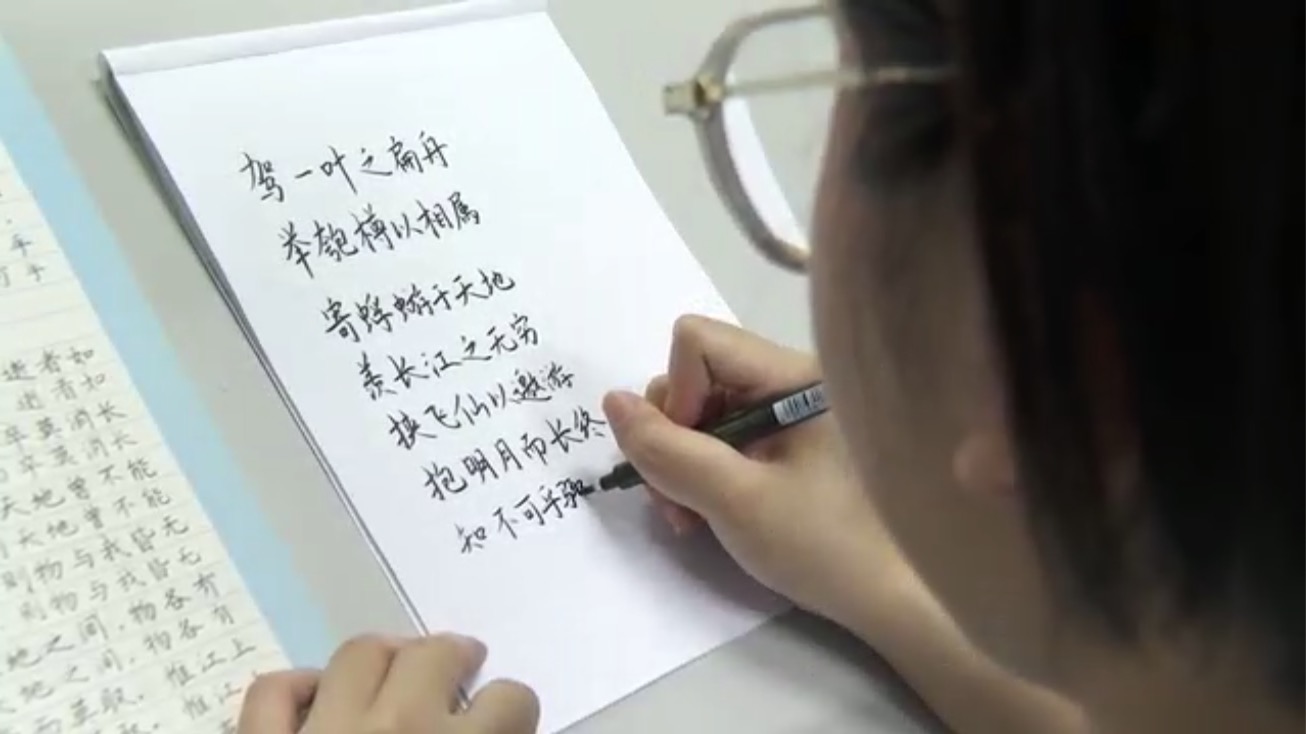 驾一叶之扁舟
举匏樽以相属
寄蜉蝣于天地
羡长江之无穷
挟飞仙以遨游
抱明月而长终
知不可乎骤
逝者如
逝者如
卒莫消长
卒莫消长
天地曾不能
天地曾不能
则物与我皆无
则物与我皆无
地之间,物各有
地之间,物各有
而莫取。惟江上
莫取。惟江